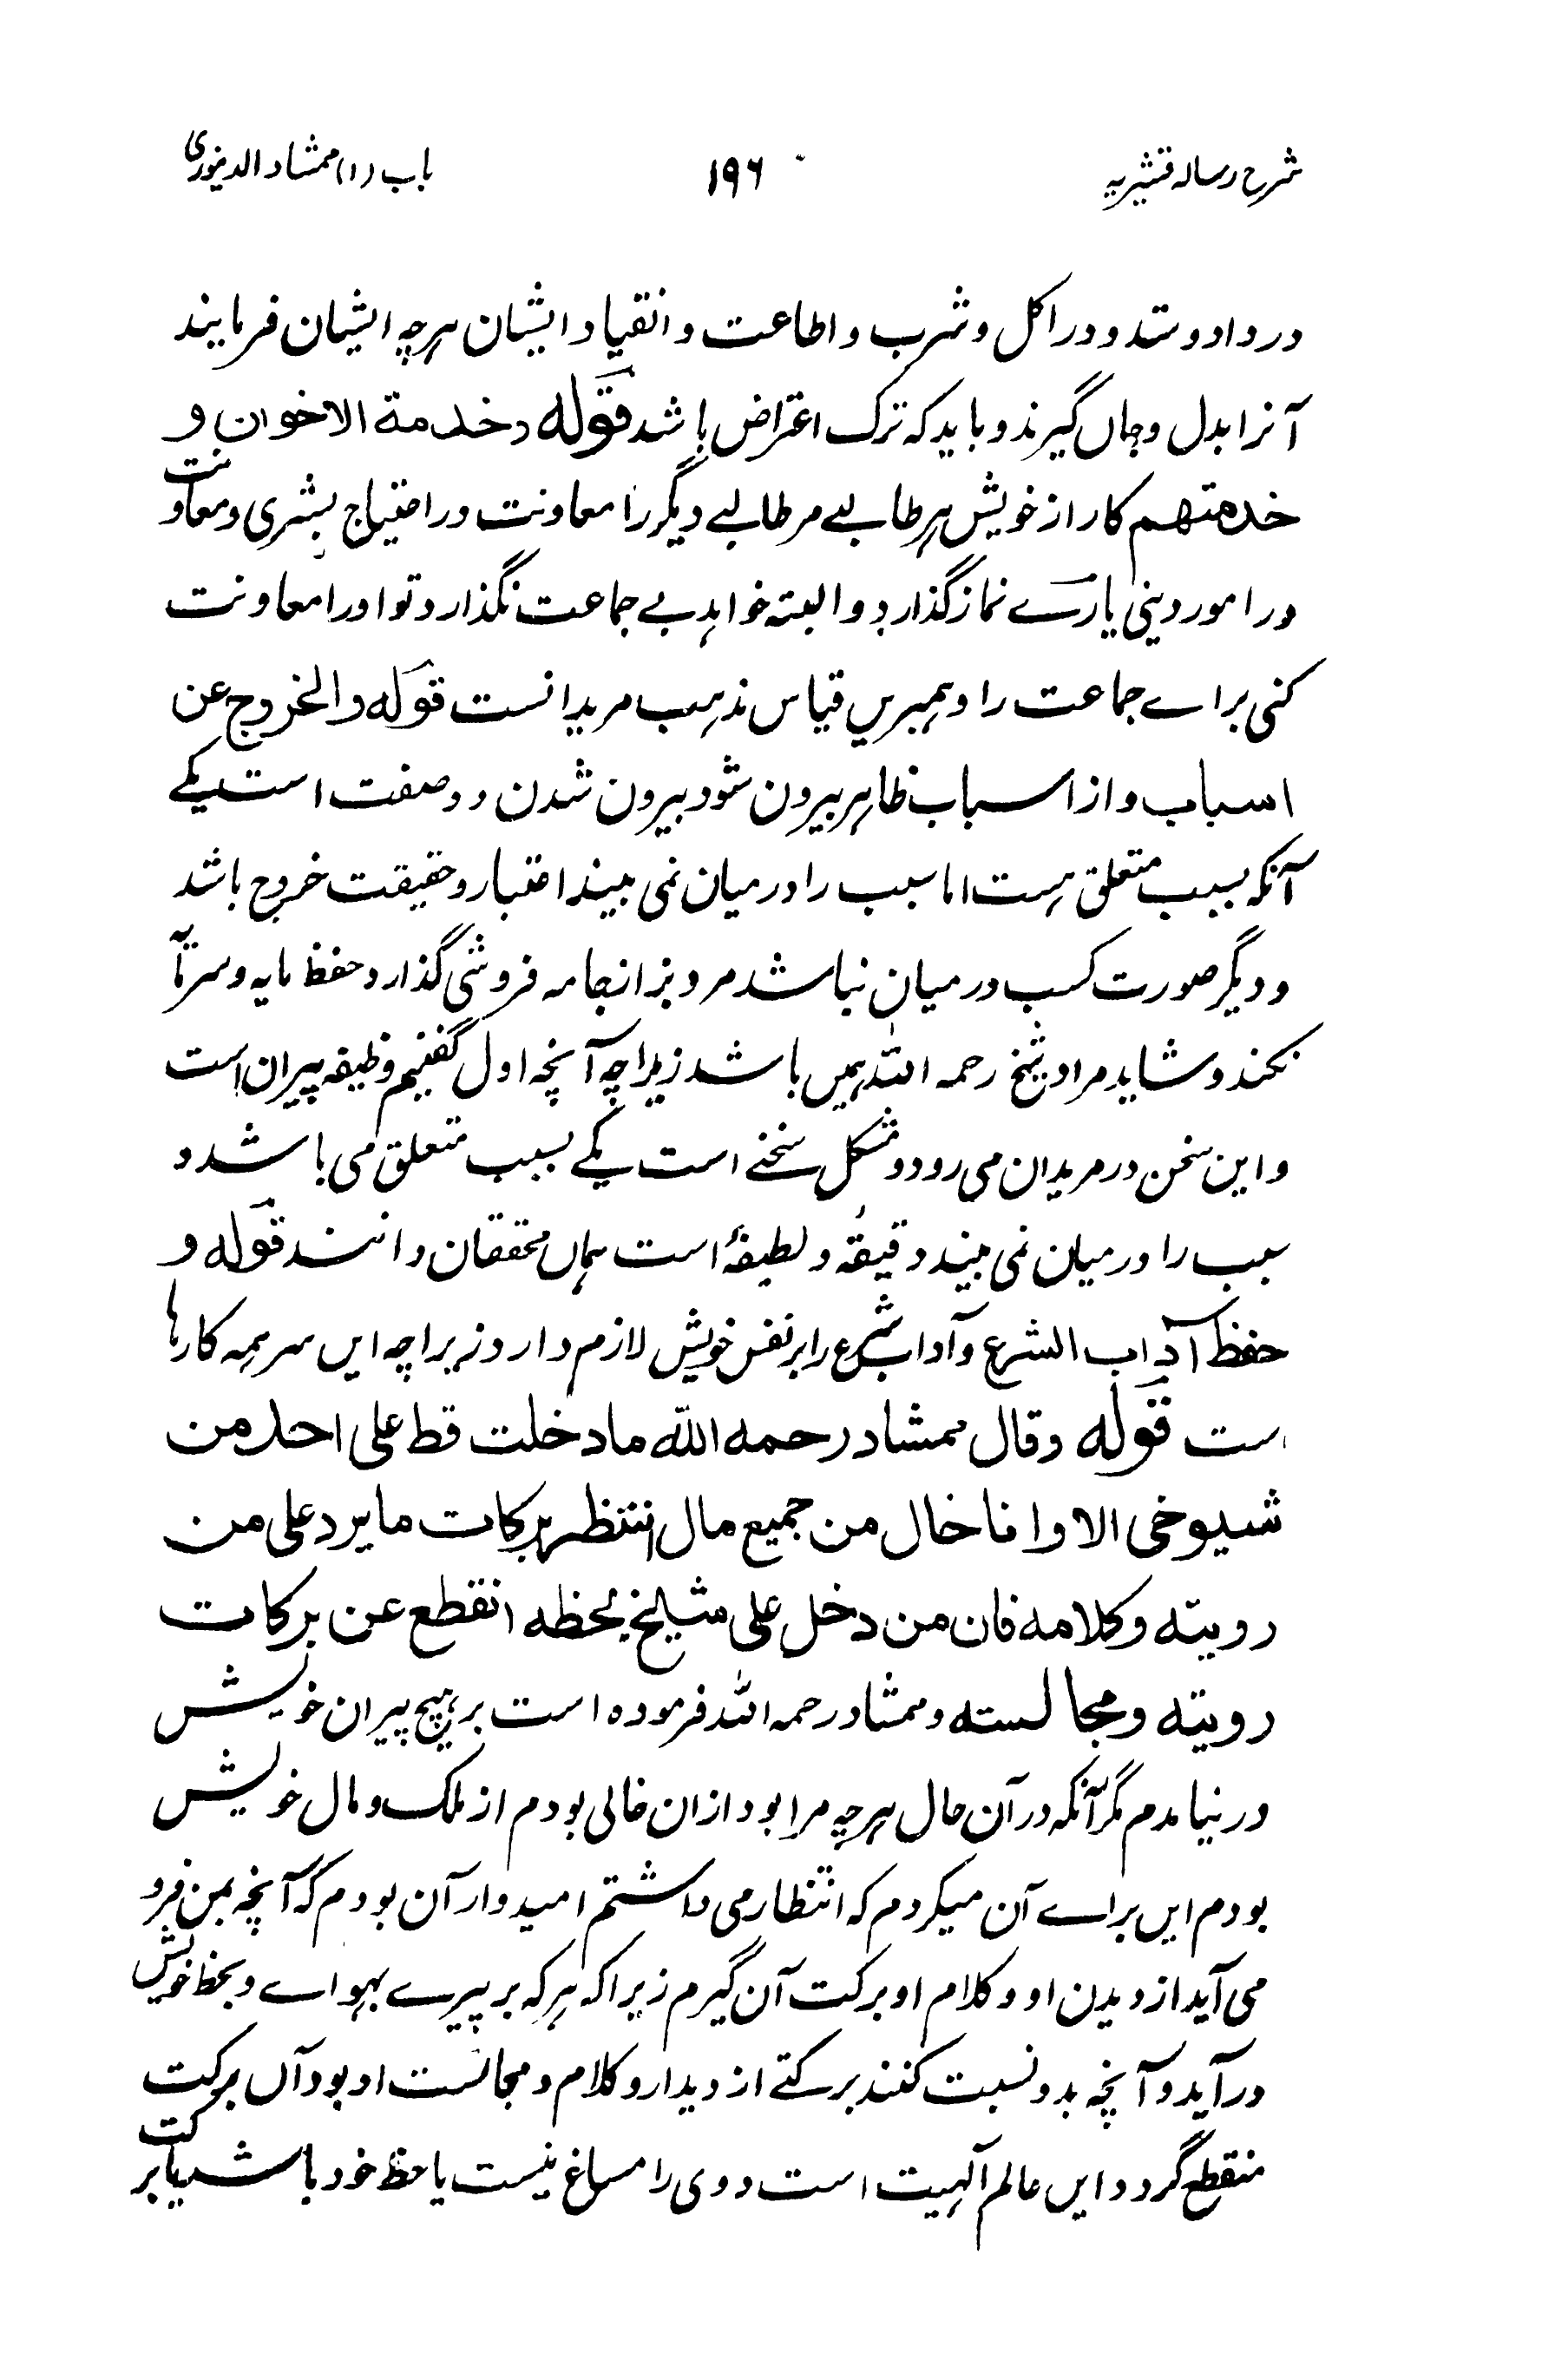 شرح رسالہ قشیریہ ۱۹۶ باب (۱) ممشاد الدینوری
در داد و ستد و در اکل و شرب و اطاعت و انقیاد ایشان ہرچہ ایشان فرمایند
آنرا بدل و جاں گیرند و باید کہ ترک اعتراض باشد قولہ و خدمة الاخوان و
خدمتہم کار از خویش ہر طالبے مر طالبے دیگر را معاونت در احتیاج بشری و معاونت
در امور دینی یارے نماز گذارد و البتہ خواہد بے جماعت نگذارد تو او را معاونت
کنی براے جماعت را و ہمبریں قیاس مذہب مریدانست قولہ والخروج عن
اسباب و از اسباب ظاہر بیرون شود بیرون شدن دو صفت است یکے
آنکہ بسبب متعلق ہست اما سبب را درمیان نمی بیند اعتبار و حقیقت خروج باشد
و دیگر صورت کسب درمیان نباشد مرد بزاز جامہ فروشی گذارد حفظ مایہ و سرمآ
نکند و شاید مراد شیخ رحمہ اللہ ہمیں باشد زیراچہ آنچہ اول گفتیم وظیفہ پیران است
و این سخن در مریدان می رود و مشکل سخنے است یکے بسبب متعلق می باشد و
سبب را درمیان نمی بیند دقیقۂ و لطیفۂ است ہماں محققان دانند قولہ و
حفظ آداب الشرع و آداب شرع را بر نفس خویش لازم دارد زیراچہ ایں سر ہمہ کارہا
است قولہ وقال ممشاد رحمہ اللہ ما دخلت قط علی احد من
شیوخی الا و انا خال من جمیع مال انتظر برکات ما یرد علی من
رویتہ و کلامہ فان من دخل علی شیخ بحظہ انقطع عن برکات
رویتہ و مجالستہ و ممشاد رحمہ اللہ فرمودہ است بر ہیچ پیران خویش
در نیامدم مگر آنکہ در آن حال ہرچہ مرا بود ازان خالی بودم از ملک و مال خویش
بودم ایں براے آن میکردم کہ انتظار می داشتم امیدوار آن بودم کہ آنچہ بمن فرو
می آید از دیدن او و کلام او برکت آن گیرم زیراکہ ہرکہ بر پیرے بہواے و بحظ خویش
درآید و آنچہ بدو نسبت کنند برکتے از دیدار و کلام و مجالست او بود آں برکت
منقطع گردد ایں عالم آلہیت است دوی را مساغ نیست یا حظ خود باشد یا برکت